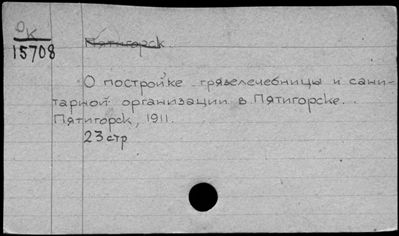 ОК
15708
Пятигорск
О постройке грязелечебницы и сани-
тарной организации в Пятигорске.
Пятигорск, 1911.
23 стр